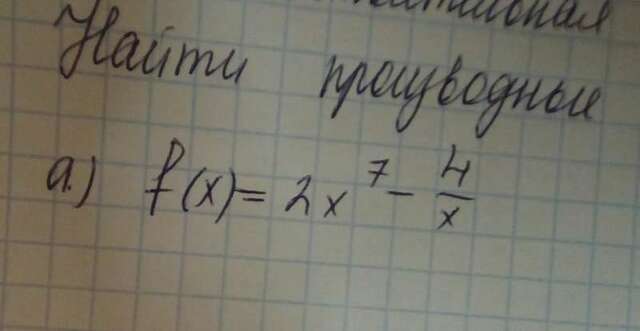 Найти производные
а.) f(x) = 2x⁷ - 4/x